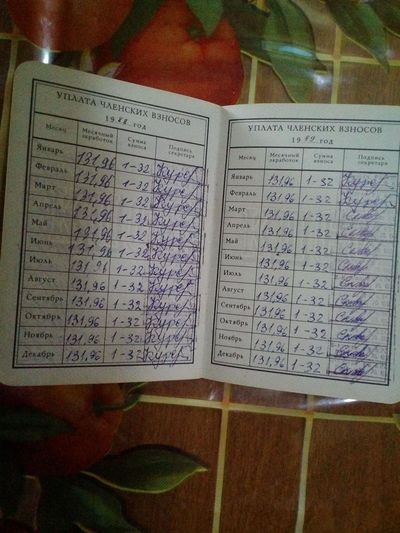 УПЛАТА ЧЛЕНСКИХ ВЗНОСОВ
1988 год
Месяц Месячный заработок Сумма взноса Подпись секретаря
Январь 131,96 1-32
Февраль 131,96 1-32
Март 131,96 1-32
Апрель 131,96 1-32
Май 131,96 1-32
Июнь 131,96 1-32
Июль 131,96 1-32
Август 131,96 1-32
Сентябрь 131,96 1-32
Октябрь 131,96 1-32
Ноябрь 131,96 1-32
Декабрь 131,96 1-32
УПЛАТА ЧЛЕНСКИХ ВЗНОСОВ
1989 год
Месяц Месячный заработок Сумма взноса Подпись секретаря
Январь 131,96 1-32
Февраль 131,96 1-32
Март 131,96 1-32
Апрель 131,96 1-32
Май 131,96 1-32
Июнь 131,96 1-32
Июль 131,96 1-32
Август 131,96 1-32
Сентябрь 131,96 1-32
Октябрь 131,96 1-32
Ноябрь 131,96 1-32
Декабрь 131,96 1-32